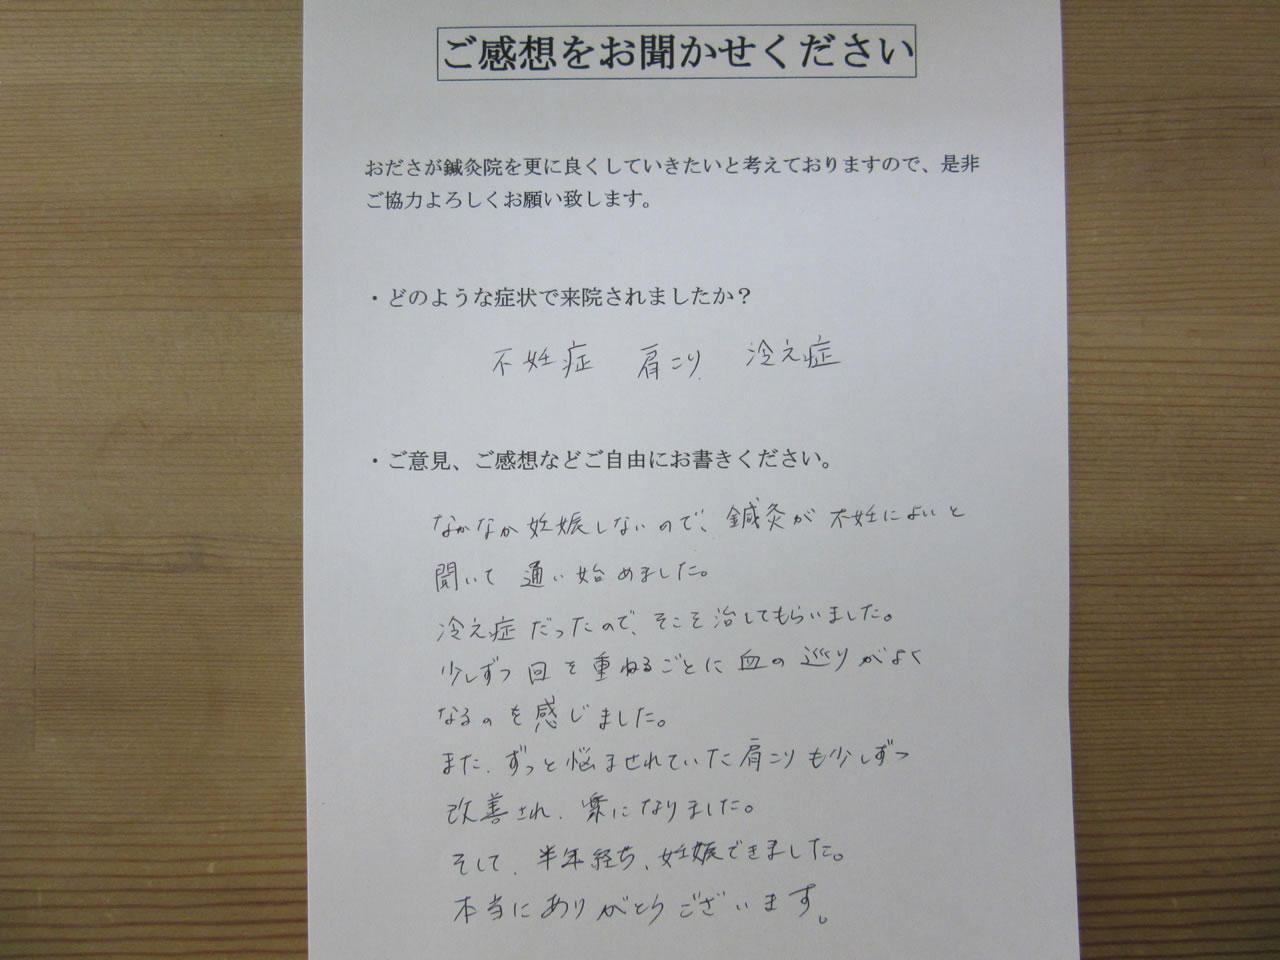 ご感想をお聞かせください
おださが鍼灸院を更に良くしていきたいと考えておりますので、是非
ご協力よろしくお願い致します。
・どのような症状で来院されましたか？
不妊症　肩こり　冷え症
・ご意見、ご感想などご自由にお書きください。
なかなか妊娠しないので、鍼灸が不妊によいと
聞いて通い始めました。
冷え症だったので、そこを治してもらいました。
少しずつ回を重ねるごとに血の巡りがよく
なるのを感じました。
また、ずっと悩まされていた肩こりも少しずつ
改善され、楽になりました。
そして、半年経ち、妊娠できました。
本当にありがとうございます。